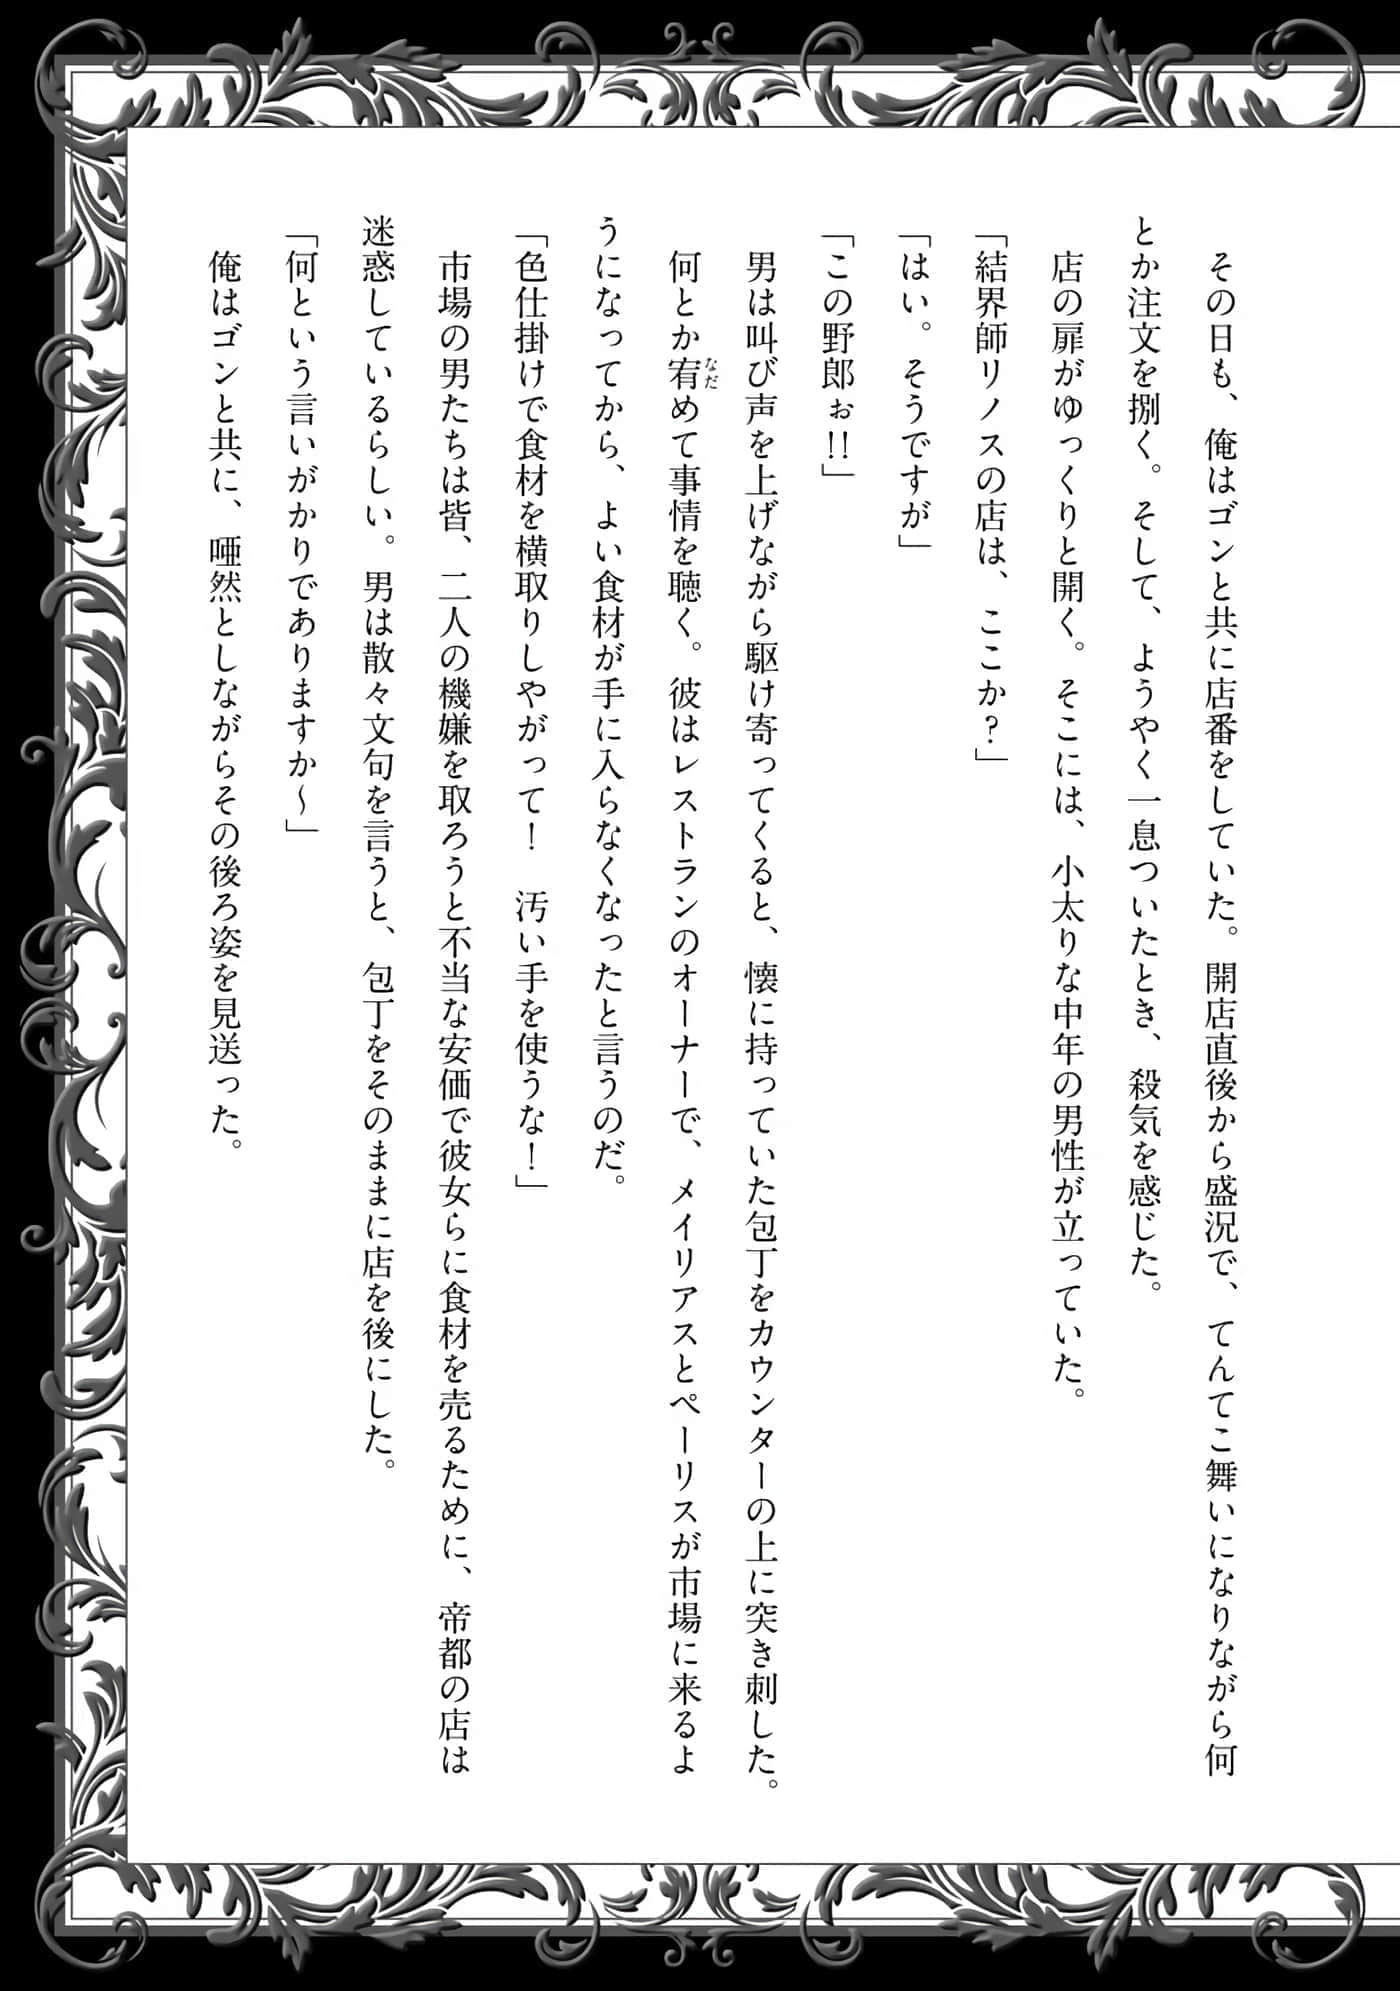 その日も、俺はゴンと共に店番をしていた。開店直後から盛況で、てんてこ舞いになりながら何
とか注文を捌く。そして、ようやく一息ついたとき、殺気を感じた。
店の扉がゆっくりと開く。そこには、小太りな中年の男性が立っていた。
「結界師リノスの店は、ここか？」
「はい。そうですが」
「この野郎ぉ!!」
男は叫び声を上げながら駆け寄ってくると、懐に持っていた包丁をカウンターの上に突き刺した。
何とか宥めて事情を聴く。彼はレストランのオーナーで、メイリアスとペーリスが市場に来るよ
なだ
うになってから、よい食材が手に入らなくなったと言うのだ。
「色仕掛けで食材を横取りしやがって！　汚い手を使うな！」
市場の男たちは皆、二人の機嫌を取ろうと不当な安価で彼女らに食材を売るために、帝都の店は
迷惑しているらしい。男は散々文句を言うと、包丁をそのままに店を後にした。
「何という言いがかりでありますか～」
俺はゴンと共に、唖然としながらその後ろ姿を見送った。